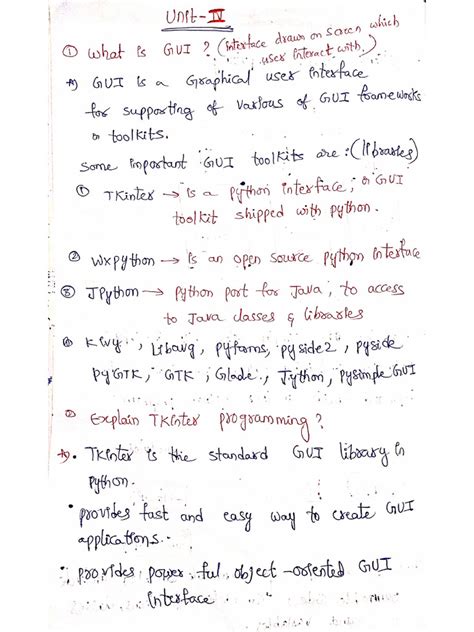 Unit-IV
① What is GUI ? (interface drawn on screen which
user interact with.)
A) GUI is a Graphical user interface
for supporting of various of GUI frameworks
or toolkits.
Some important GUI toolkits are : (libraries)
① TKinter → is a python interface, or GUI
toolkit shipped with python.
② Wxpython → Is an open source python interface
③ JPython → python port for Java, to access
to Java classes & libraries
Kivy, Libavg, pyforms, pyside2, pyside
PyGTK, GTK, Glade, Jython, pysimple GUI
② Explain TKinter programming?
A). • TKinter is the standard GUI library in
python.
• provides fast and easy way to create GUI
applications.
• provides power ful object-oriented GUI
interface